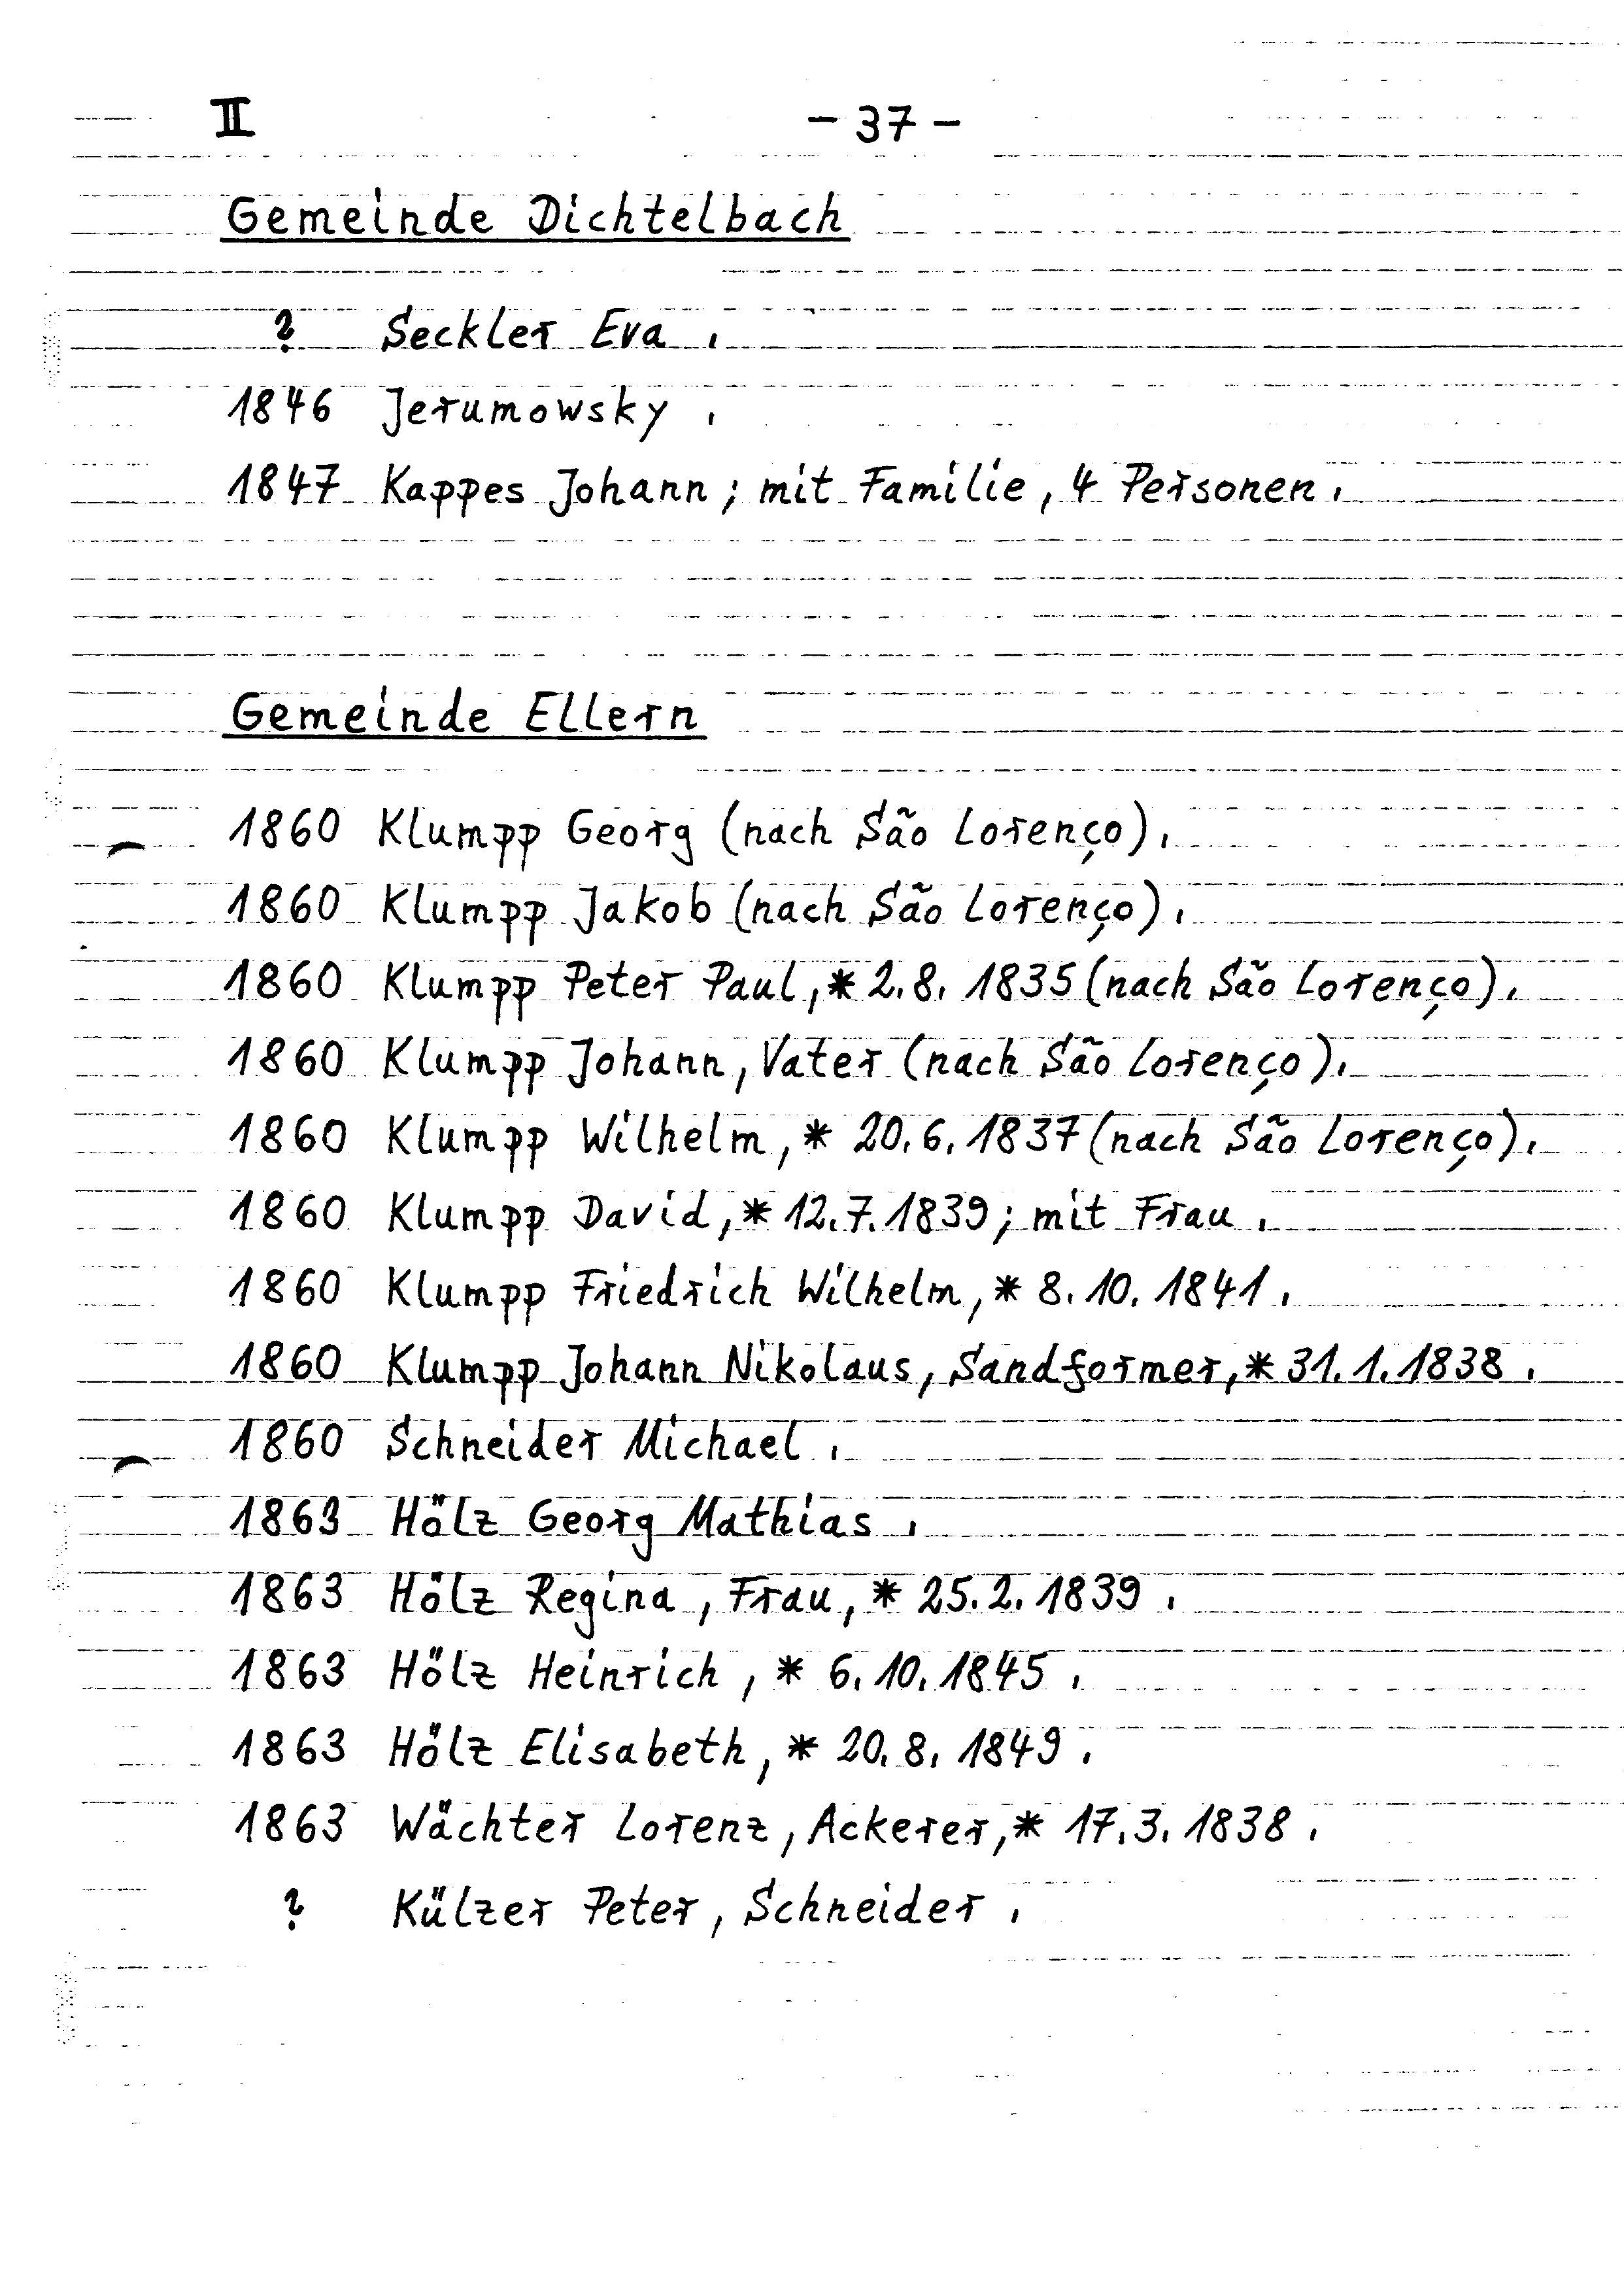 II - 37 -
Gemeinde Dichtelbach
? Seckler Eva.
1846 Jerumowsky.
1847 Kappes Johann; mit Familie, 4 Personen.
Gemeinde Ellern
1860 Klumpp Georg (nach São Lorenço).
1860 Klumpp Jakob (nach São Lorenço).
1860 Klumpp Peter Paul, * 2.8.1835 (nach São Lorenço).
1860 Klumpp Johann, Vater (nach São Lorenço).
1860 Klumpp Wilhelm, * 20.6.1837 (nach São Lorenço).
1860 Klumpp David, * 12.7.1839; mit Frau.
1860 Klumpp Friedrich Wilhelm, * 8.10.1841.
1860 Klumpp Johann Nikolaus, Sandformer, * 31.1.1838.
1860 Schneider Michael.
1863 Hölz Georg Mathias.
1863 Hölz Regina, Frau, * 25.2.1839.
1863 Hölz Heinrich, * 6.10.1845.
1863 Hölz Elisabeth, * 20.8.1849.
1863 Wächter Lorenz, Ackerer, * 17.3.1838.
? Külzer Peter, Schneider.